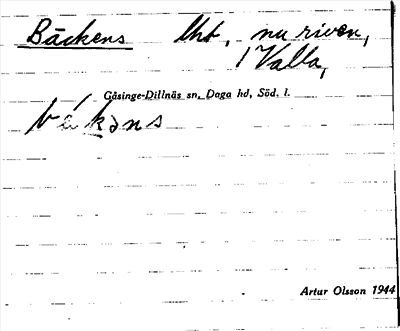 Bäckens lht, nu riven,
i Valla,
Gåsinge-Dillnäs sn, Daga hd, Söd. l.
bɛ́kəns
Artur Olsson 1944